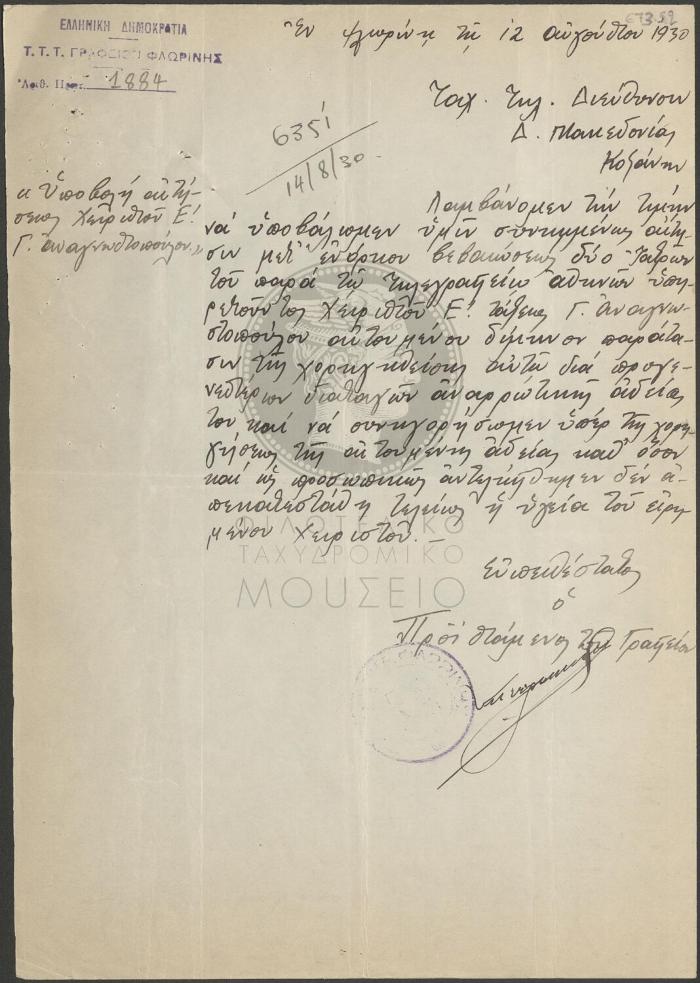 67359
ΕΛΛΗΝΙΚΗ ΔΗΜΟΚΡΑΤΙΑ
Τ. Τ. Τ. ΓΡΑΦΕΙΟΝ ΦΛΩΡΙΝΗΣ
Ἀριθ. Πρωτ. 1884
Ἐν Φλωρίνῃ τῇ 12 αὐγούστου 1930
Ταχ. Τηλ. Διεύθυνσιν
Δ. Μακεδονίας
Κοζάνην
6351
14/8/30.
« Ὑποβολὴ αἰτή-
σεως Χειριστοῦ Ε!
Γ. Ἀναγνωστοπούλου »
Λαμβάνομεν τὴν τιμὴν
νὰ ὑποβάλωμεν ὑμῖν συνημμένως αἴτη-
σιν μετ' ἐνόρκου βεβαιώσεως δύο ἰατρῶν
τοῦ παρὰ τῷ Τηλεγραφείῳ Ἀθηνῶν ὑπη-
ρετοῦντος Χειριστοῦ Ε! τάξεως Γ. Ἀναγνω-
στοπούλου αἰτουμένου δίμηνον παράτα-
σιν τῆς χορηγηθείσης αὐτῷ διὰ προγε-
νεστέρων διαταγῶν ἀναρρωτικῆς ἀδείας
του καὶ νὰ συνηγορήσωμεν ὑπὲρ τῆς χορη-
γήσεως τῆς αἰτουμένης ἀδείας καθ' ὅσον
καὶ ὡς προσωπικῶς ἀντελήφθημεν δὲν ἀ-
πεκατεστάθη τελείως ἡ ὑγεία τοῦ εἰρη-
μένου Χειριστοῦ. –
Εὐπειθέστατος
ὁ
Προϊστάμενος τοῦ Γραφείου
ΦΛΩΡΙΝΗΣ
ΦΙΛΟΤΕΛΙΚΟ
ΤΑΧΥΔΡΟΜΙΚΟ
ΜΟΥΣΕΙΟ